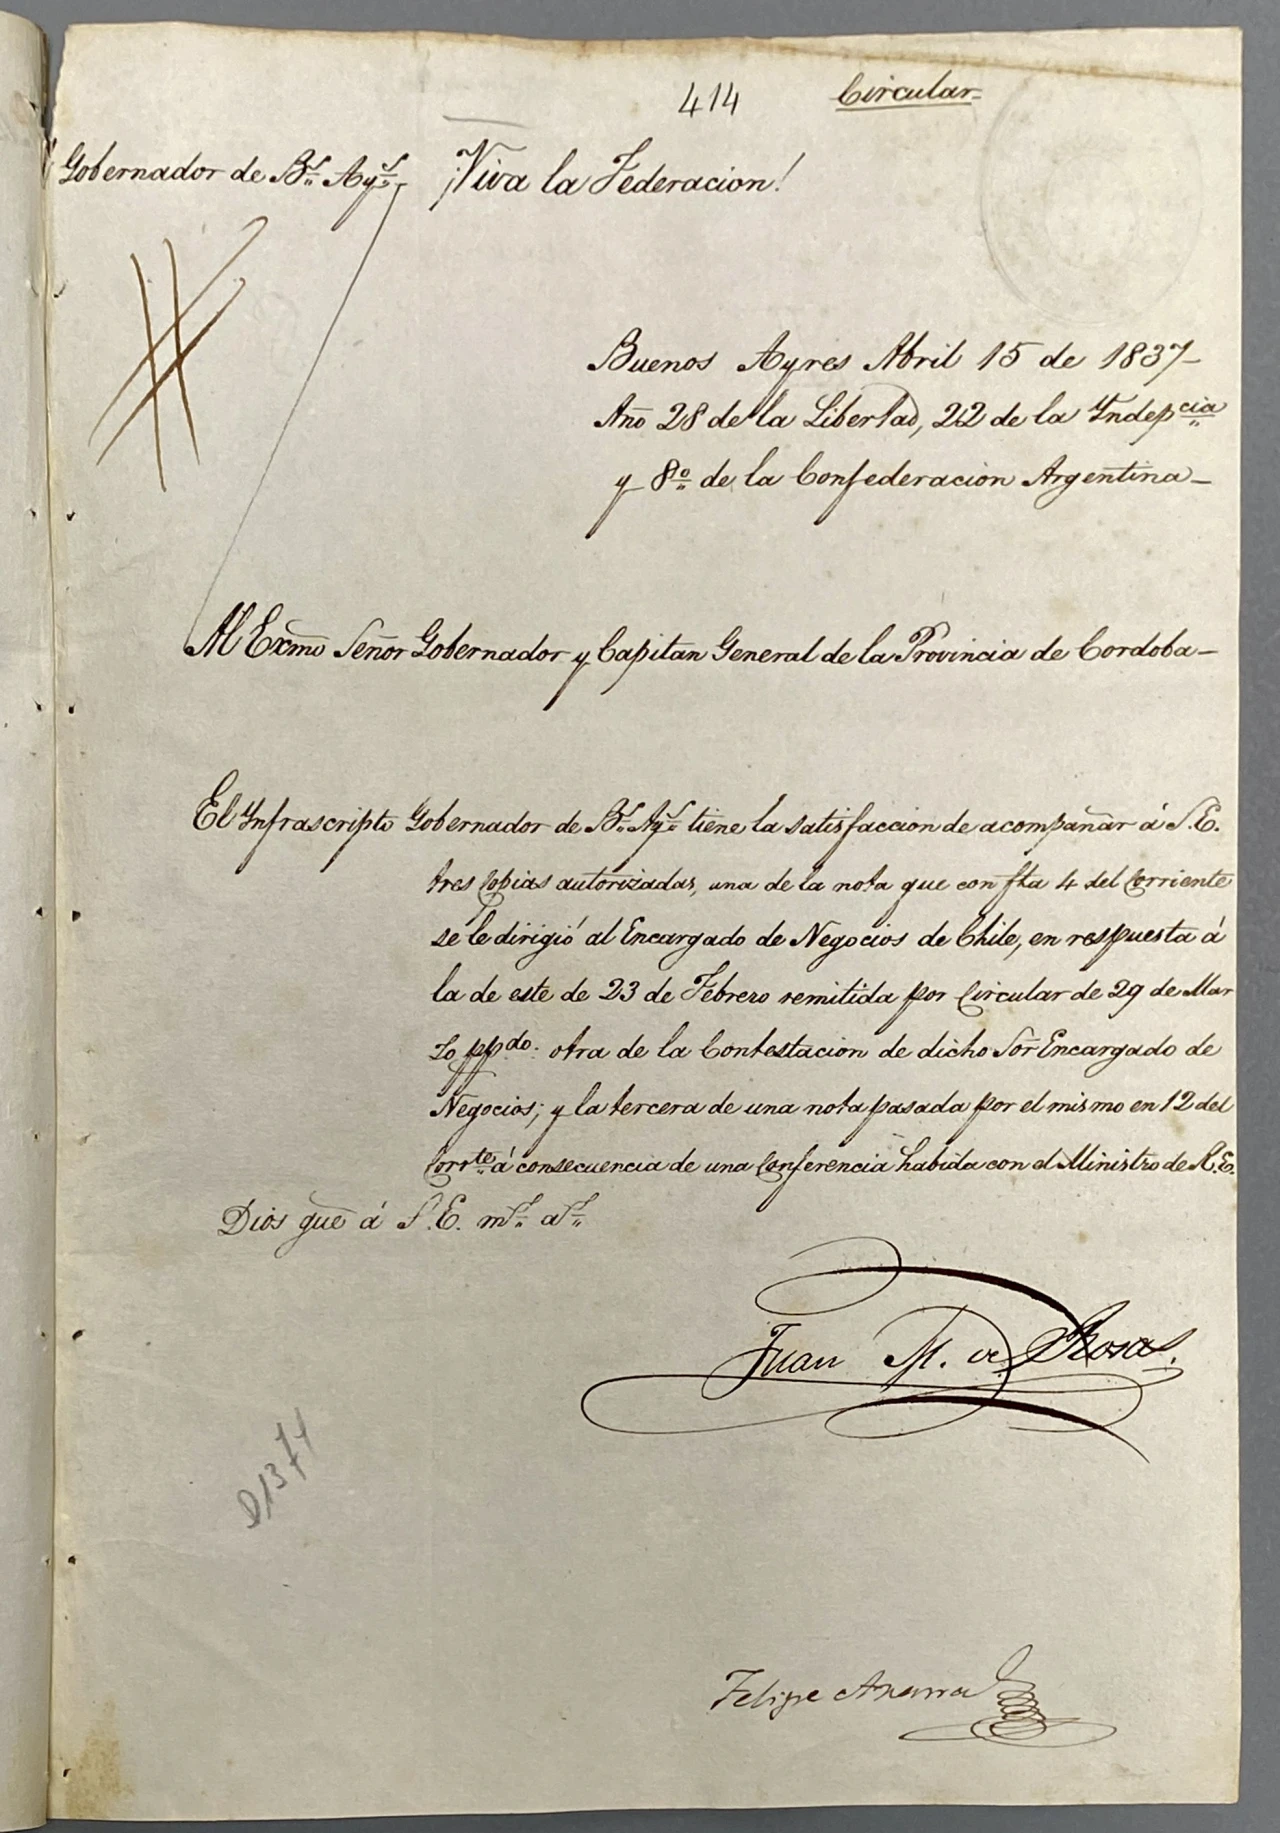 414
Circular
El Gobernador de Bs. Ays. ¡Viva la Federacion!
Buenos Ayres Abril 15 de 1837
Año 28 de la Libertad, 22 de la Yndepcia
y 8o de la Confederacion Argentina
Al Exmo Señor Gobernador y Capitan General de la Provincia de Cordoba
El Ynfrascripto Gobernador de Bs. Ays. tiene la satisfaccion de acompañar á S.E.
tres Copias autorizadas, una de la nota que con fha 4 del Corriente
se le dirigió al Encargado de Negocios de Chile, en respuesta á
la de este de 23 de Febrero remitida por Circular de 29 de Mar
zo ppdo: otra de la Contestacion de dicho Sor Encargado de
Negocios; y la tercera de una nota pasada por el mismo en 12 del
Corrte. á consecuencia de una Conferencia habida con el Ministro de R.E.
Dios gue á S.E. ms. as.
Juan M. de Rosas.
D1374
Felipe Arana